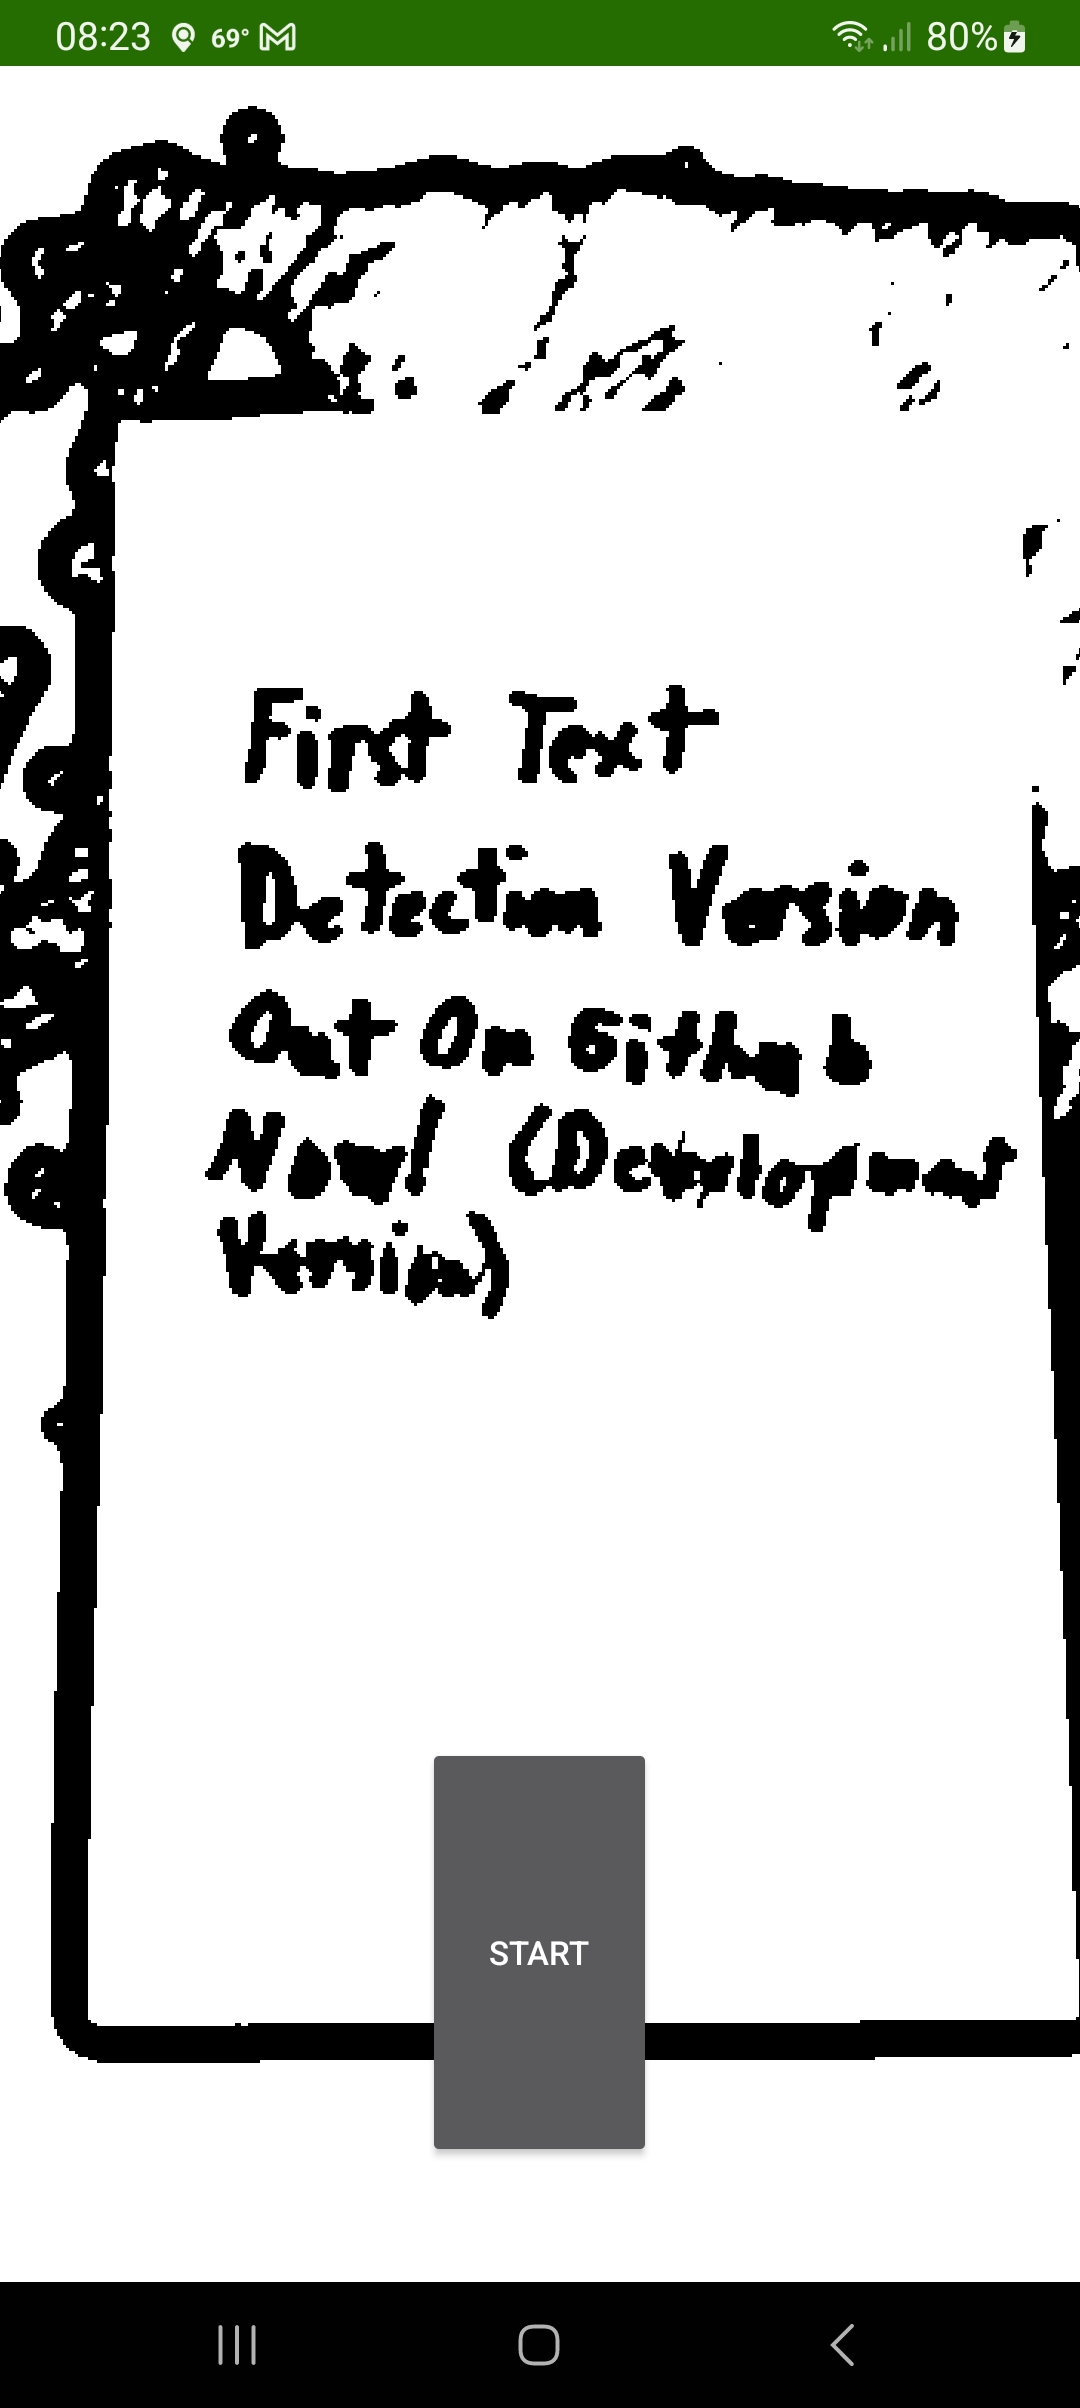 08:23 69° 80%
First Text
Detection Version
Out On Github
Now! (Development
Version)
START